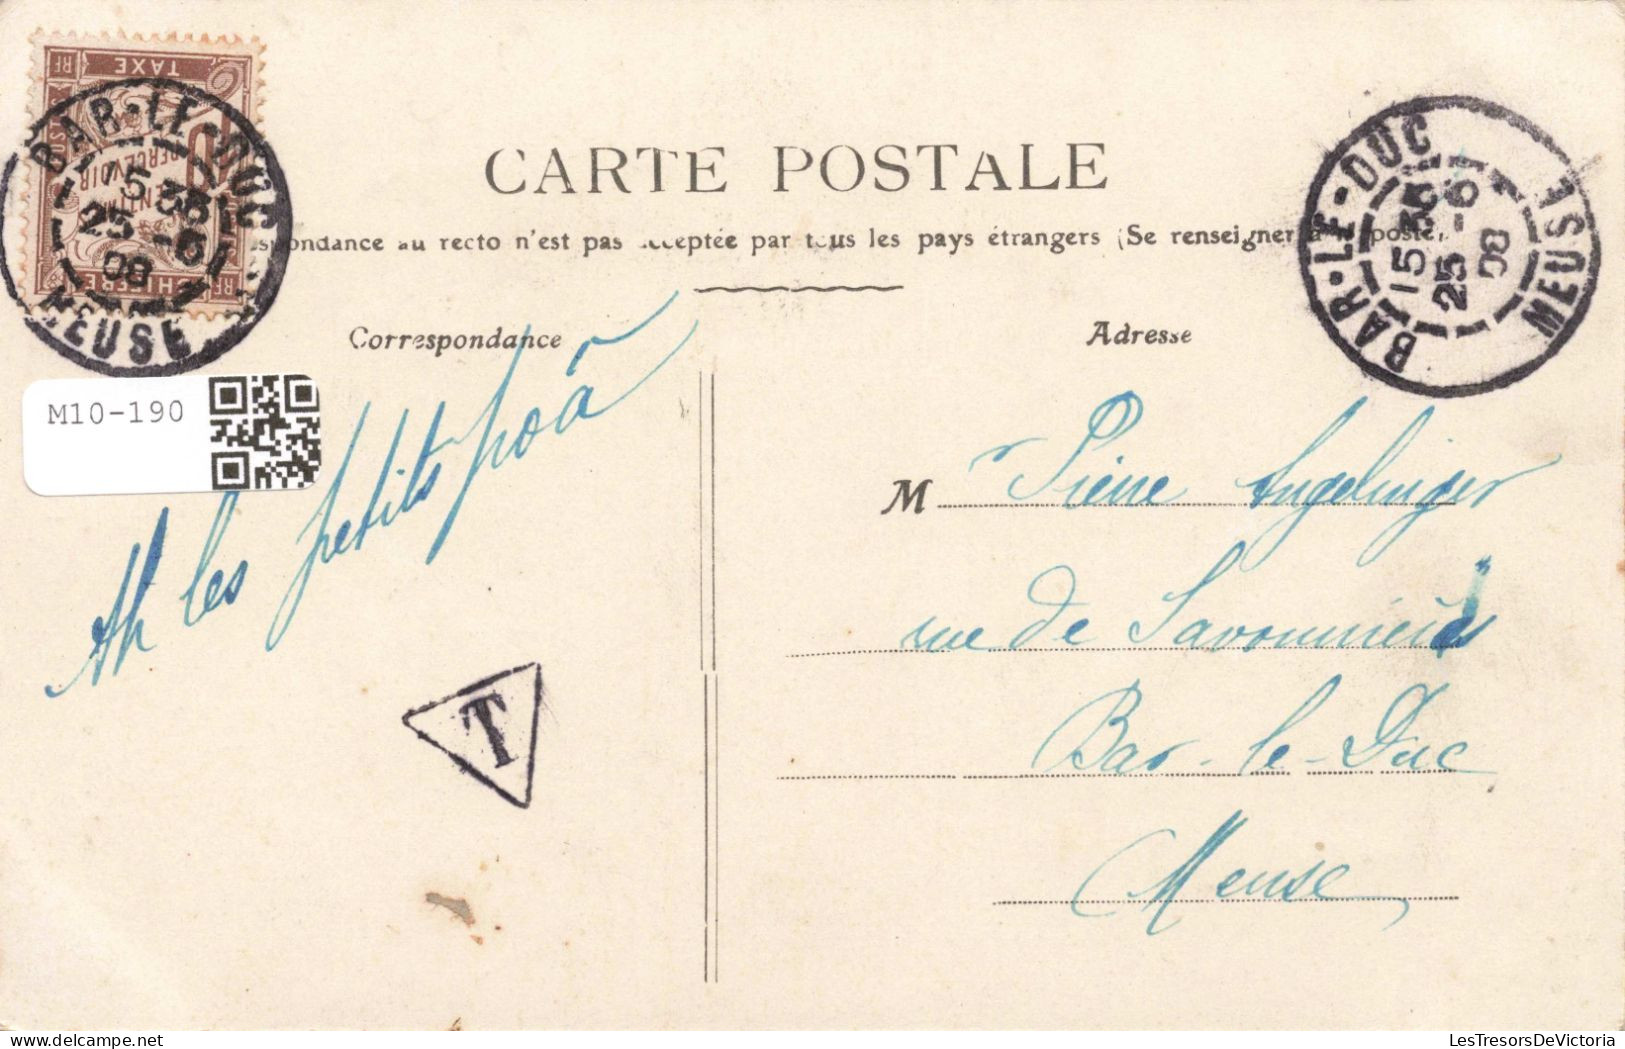 RF TAXE RF
POSTES
PERCEVOIR
CHIFFRE
BAR-LE-DUC
15 35
25 -6
08
MEUSE
BAR-LE-DUC
15 35
25 -6
08
MEUSE
CARTE POSTALE
spondance au recto n'est pas acceptée par tous les pays étrangers (Se renseigner à la poste)
Correspondance
Adresse
M10-190
Ah les petits poâ
T
M r Pierre Angelinger
rue de Savonnières
Bar-le-Duc
Meuse
LesTresorsDeVictoria